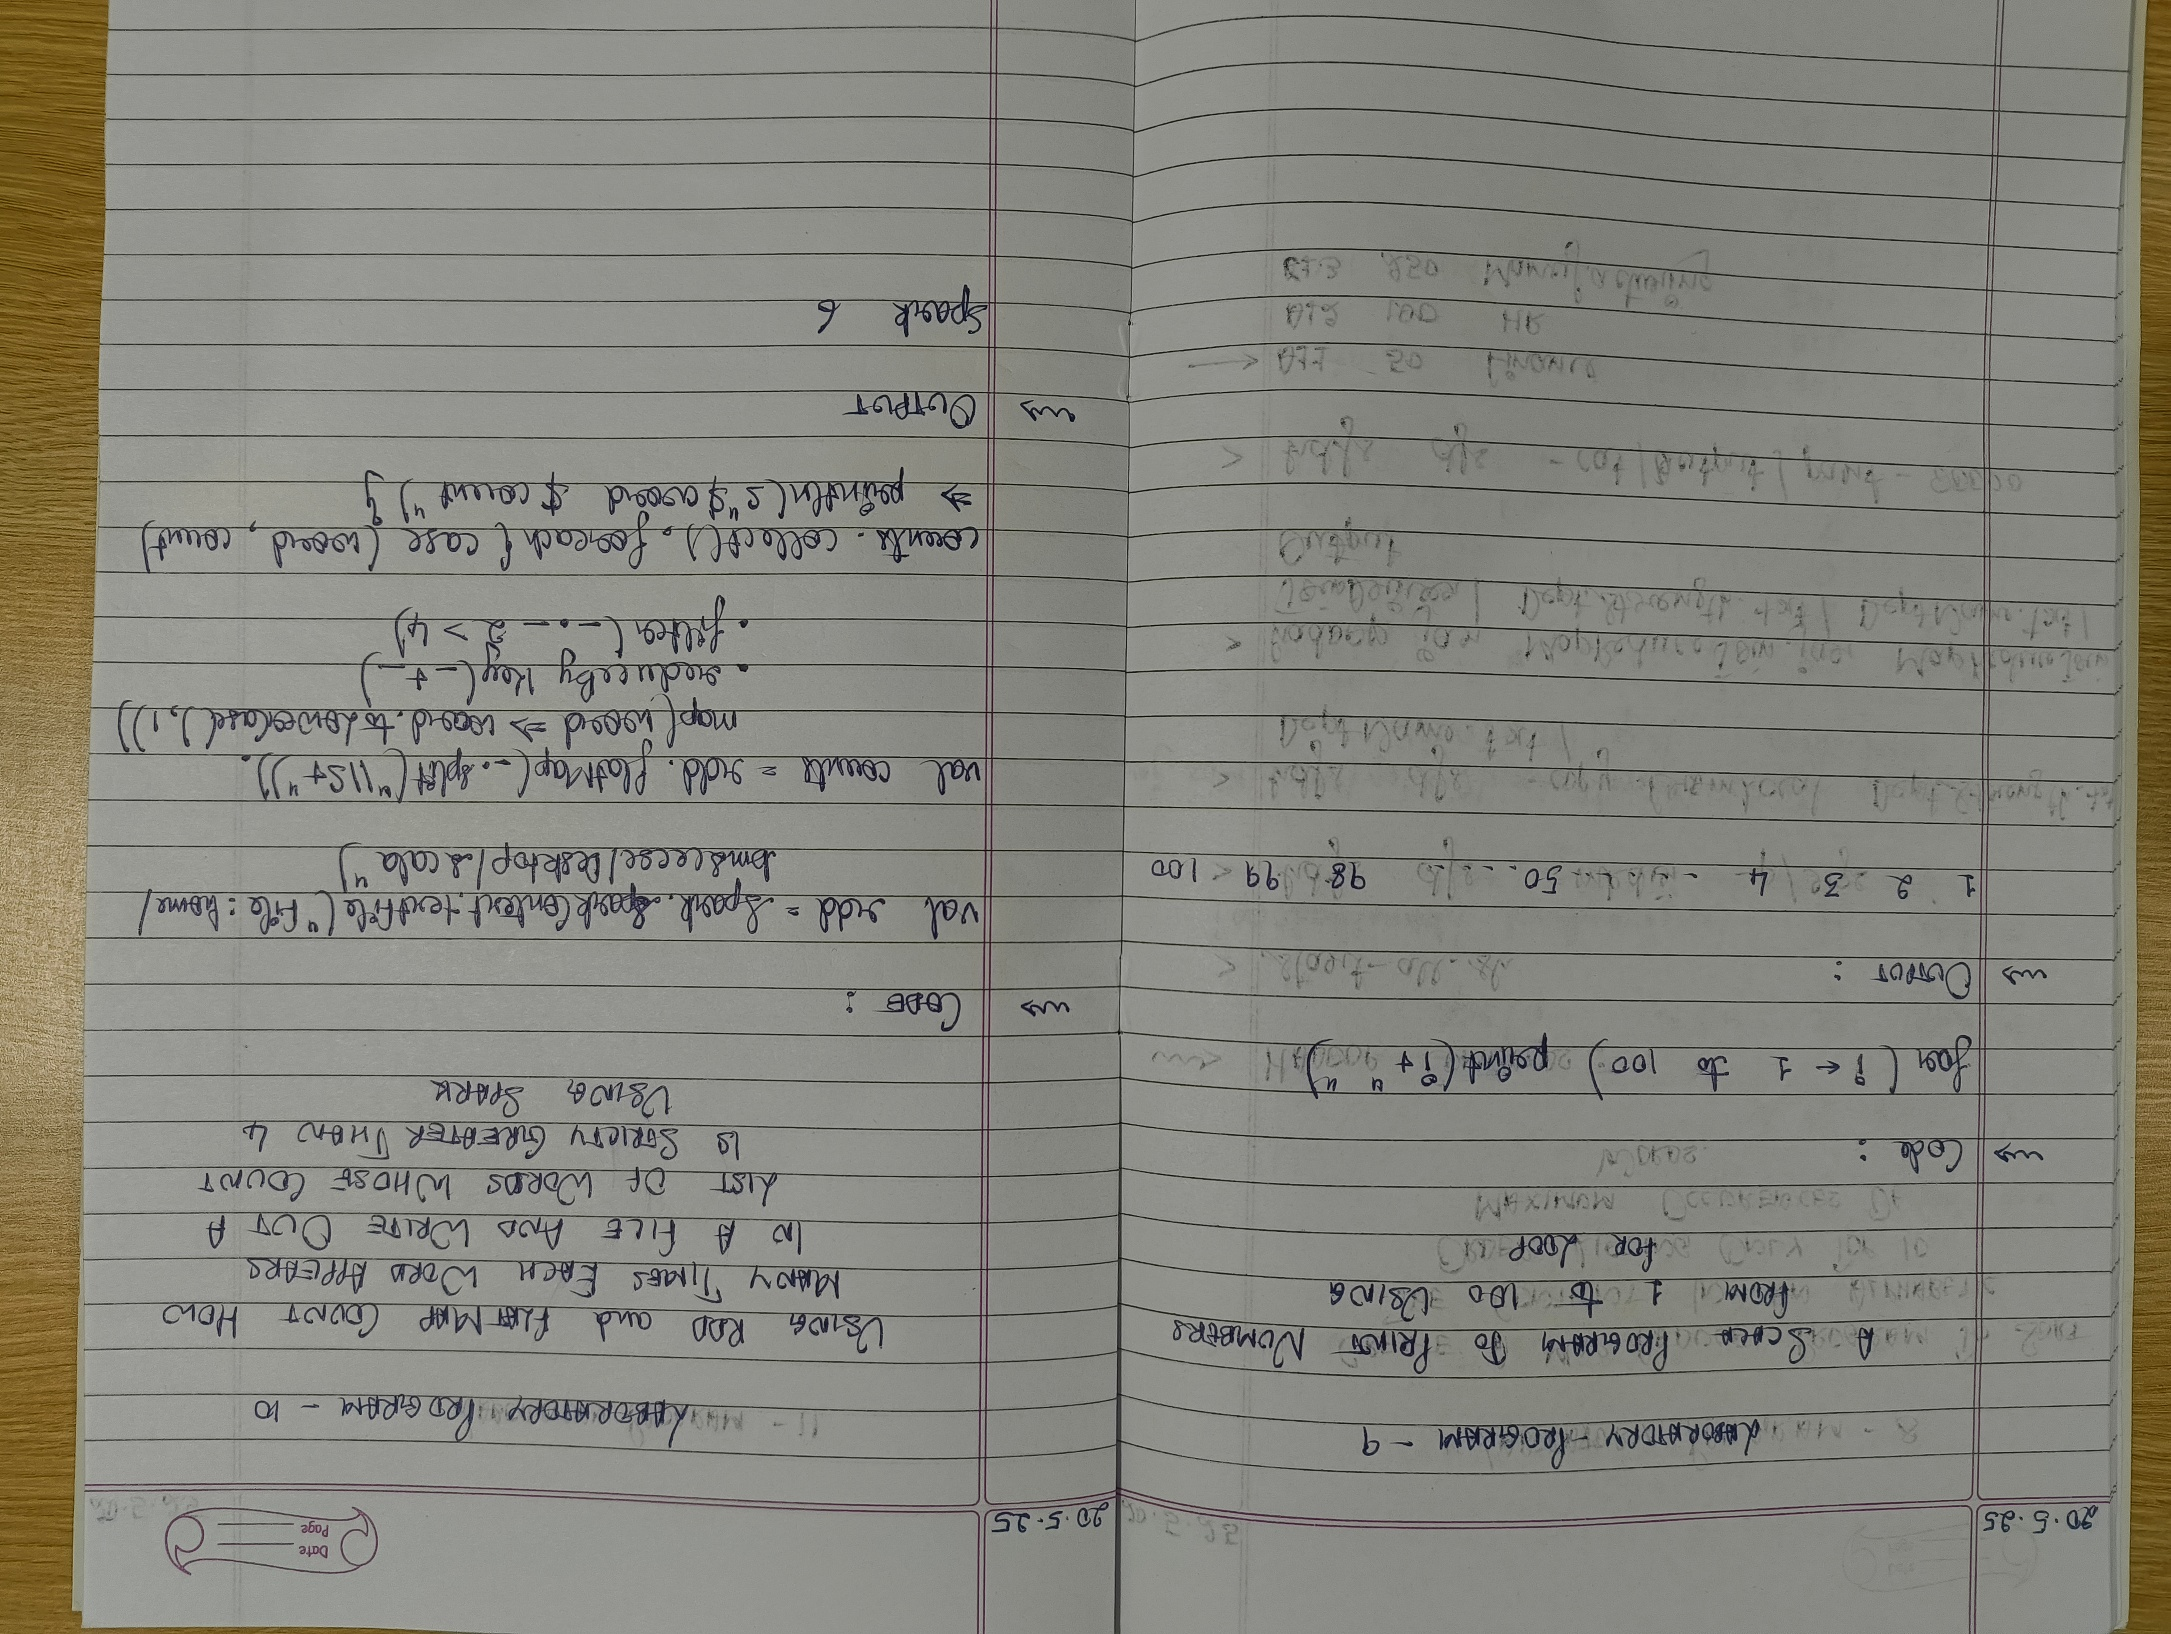 20.5.25
LABORATORY PROGRAM - 9
A SCALA PROGRAM TO PRINT NUMBERS
FROM 1 to 100 USING
FOR LOOP
Code :
for (i ← 1 to 100) print(i + " ")
OUTPUT :
1 2 3 4 - - - 50 - - - 98 99 100
20.5.25
Date
Page
LABORATORY PROGRAM - 10
USING RDD and FLATMAP COUNT HOW
MANY TIMES EACH WORD APPEARS
IN A FILE AND WRITE OUT A
LIST OF WORDS WHOSE COUNT
IS STRICTLY GREATER THAN 4
USING SPARK
CODE :
val rdd = Spark.SparkContext.textFile("File:home/
bmscecse/Desktop/scala")
val counts = rdd.flatMap(_.split("\\s+")).
map(word ⇒ word.toLowerCase(),1))
.reduceByKey(_+_)
.filter(_._2 > 4)
counts.collect().foreach{ case (word, count)
⇒ println(s"$word $count")}
OUTPUT
Spark 6